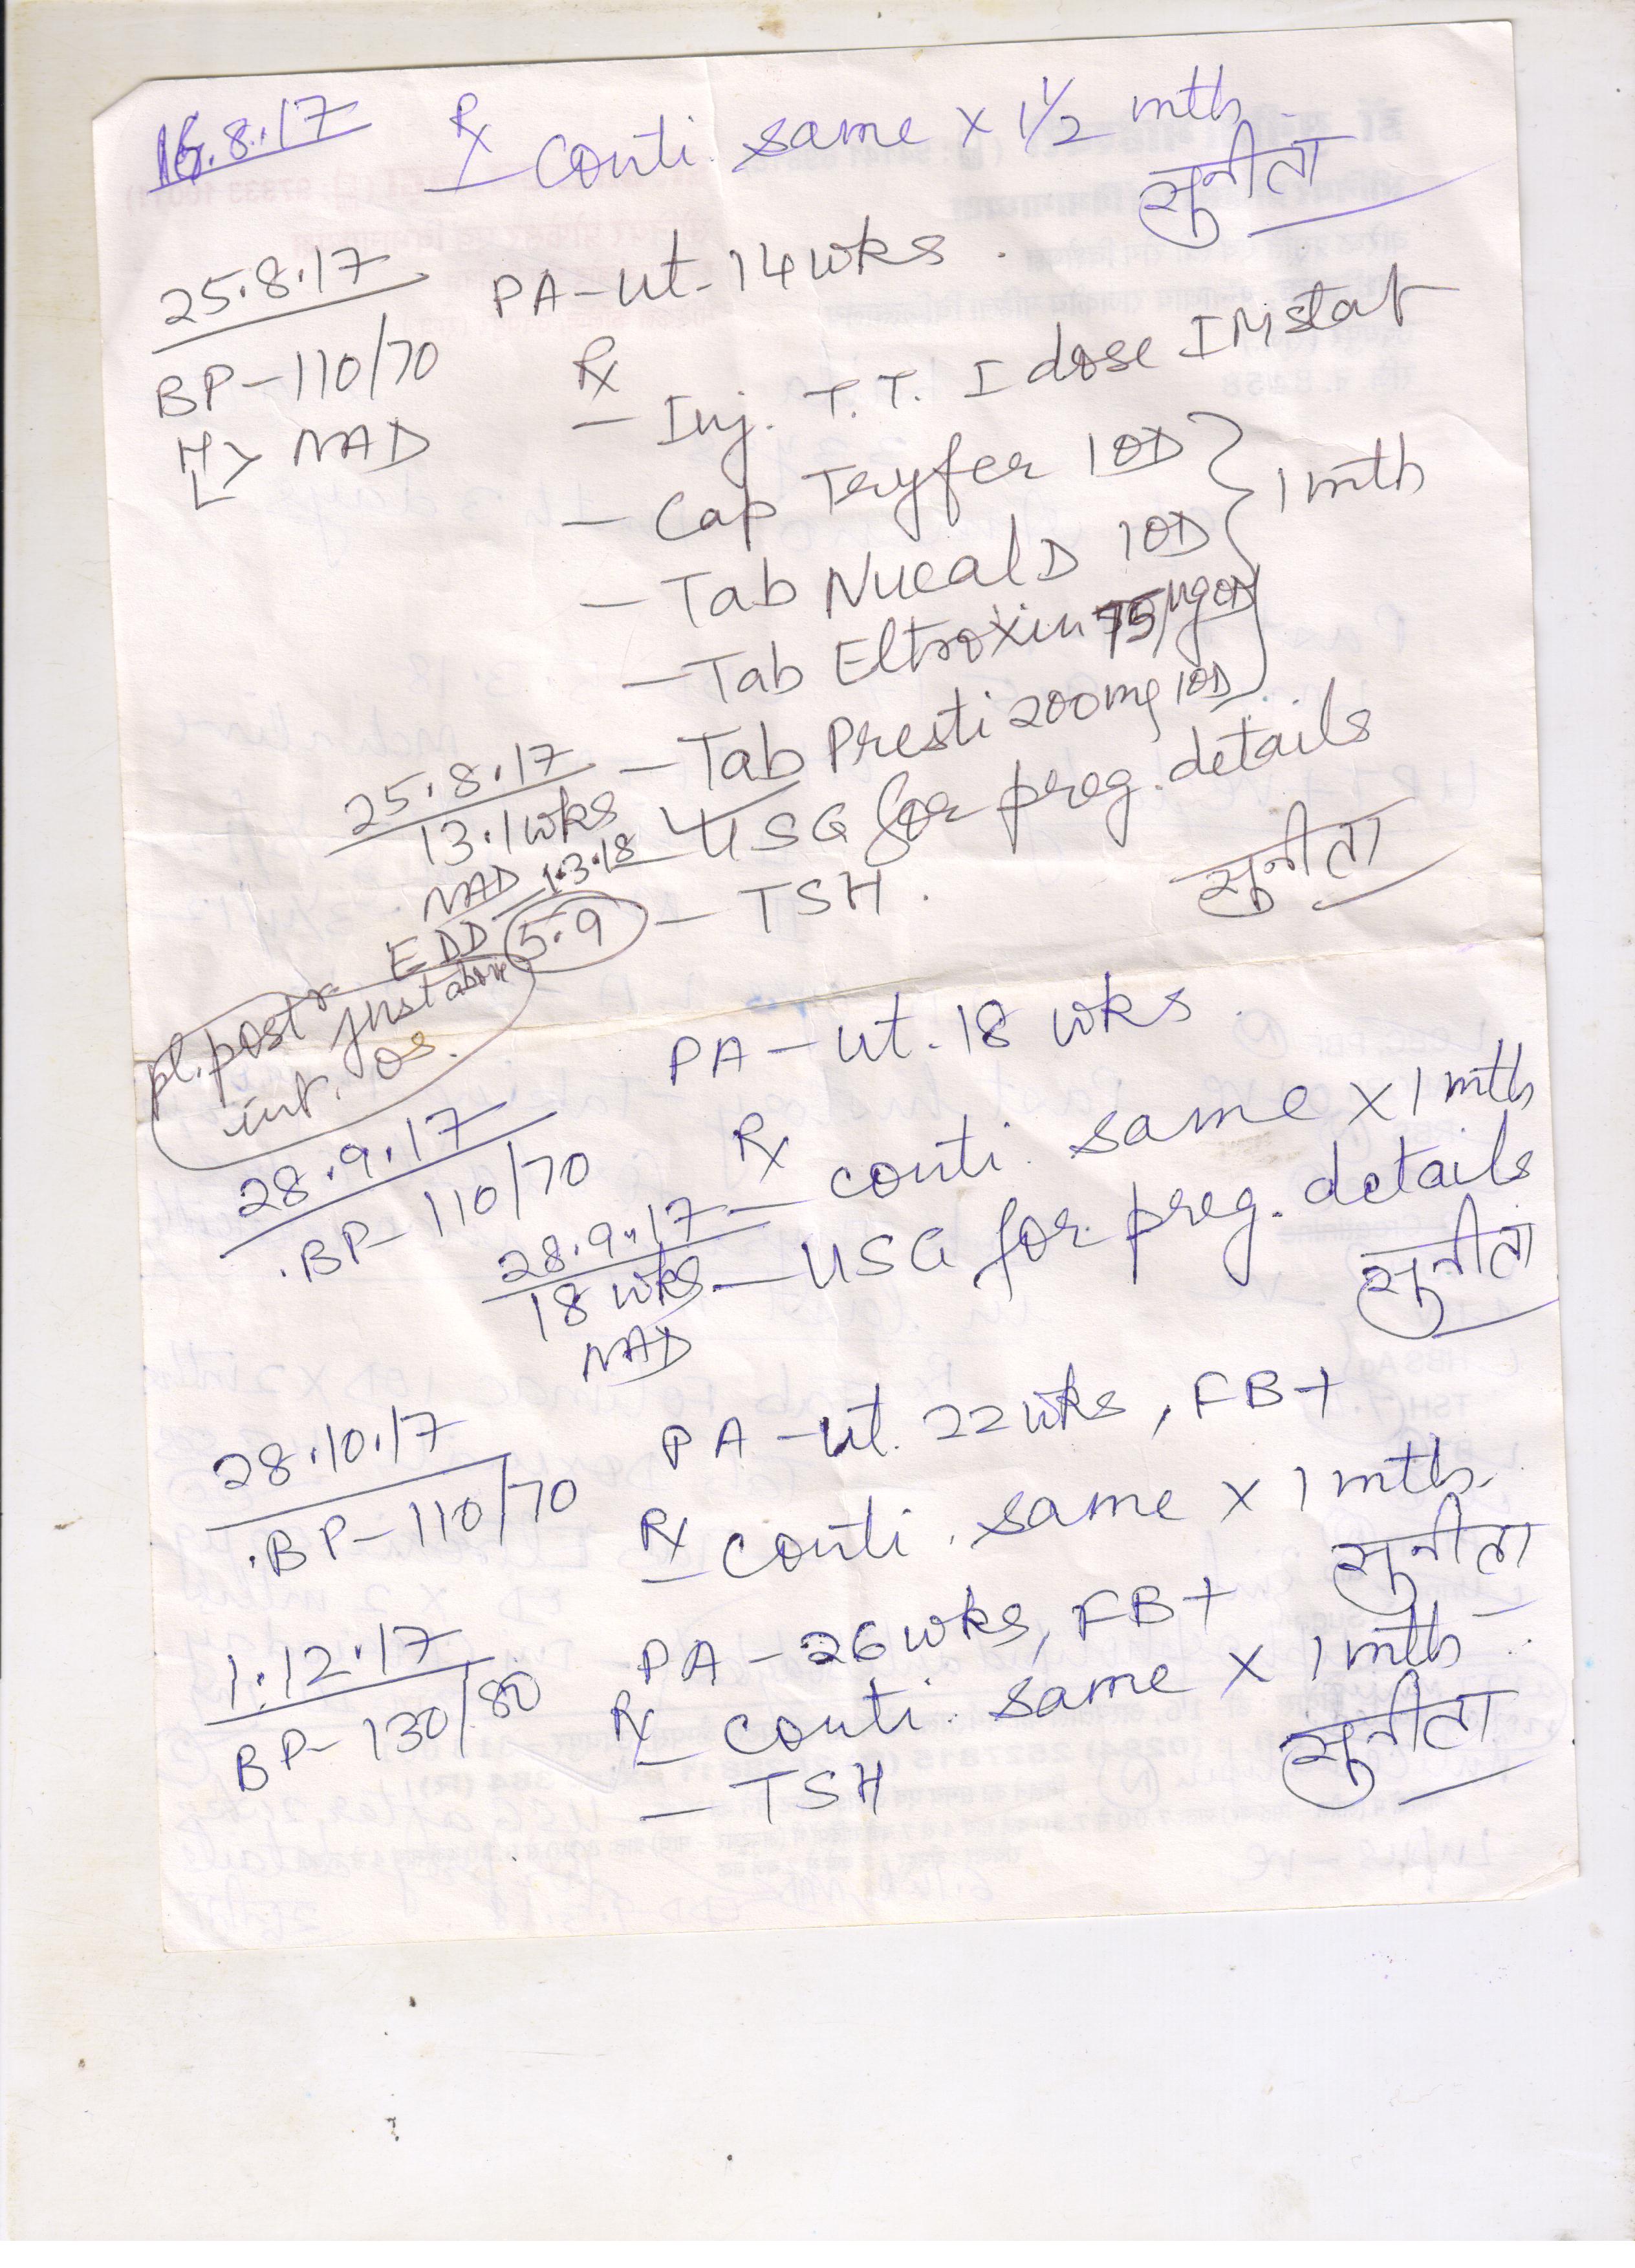 16.8.17 Rx
- conti. same x 1 1/2 mth.
सुनीता
25.8.17 PA - ut - 14 wks.
BP - 110/70 Rx
H
L > NAD - Inj. T.T. I dose IM stat
- Cap Tryfer 1OD
- Tab Nucal D 1OD } 1 mth
- Tab Eltroxin 75 µg OD
- Tab Presti 200mg 1OD
- USG for preg. details
- TSH.
सुनीता
25.8.17
13.1 wks
NAD
EDD 1.3.18
5.9
pl. post r
just above
int. os.
28.9.17 PA - ut. 18 wks.
BP - 110/70 Rx
- conti. same x 1 mth
- USG for preg. details
28.9.17
18 wks
NAD
सुनीता
28.10.17 PA - ut. 22 wks, FB+
BP - 110/70 Rx
- conti. same x 1 mth.
सुनीता
1.12.17 PA - 26 wks, FB+
BP - 130/80 Rx
- conti. same x 1 mth.
- TSH
सुनीता